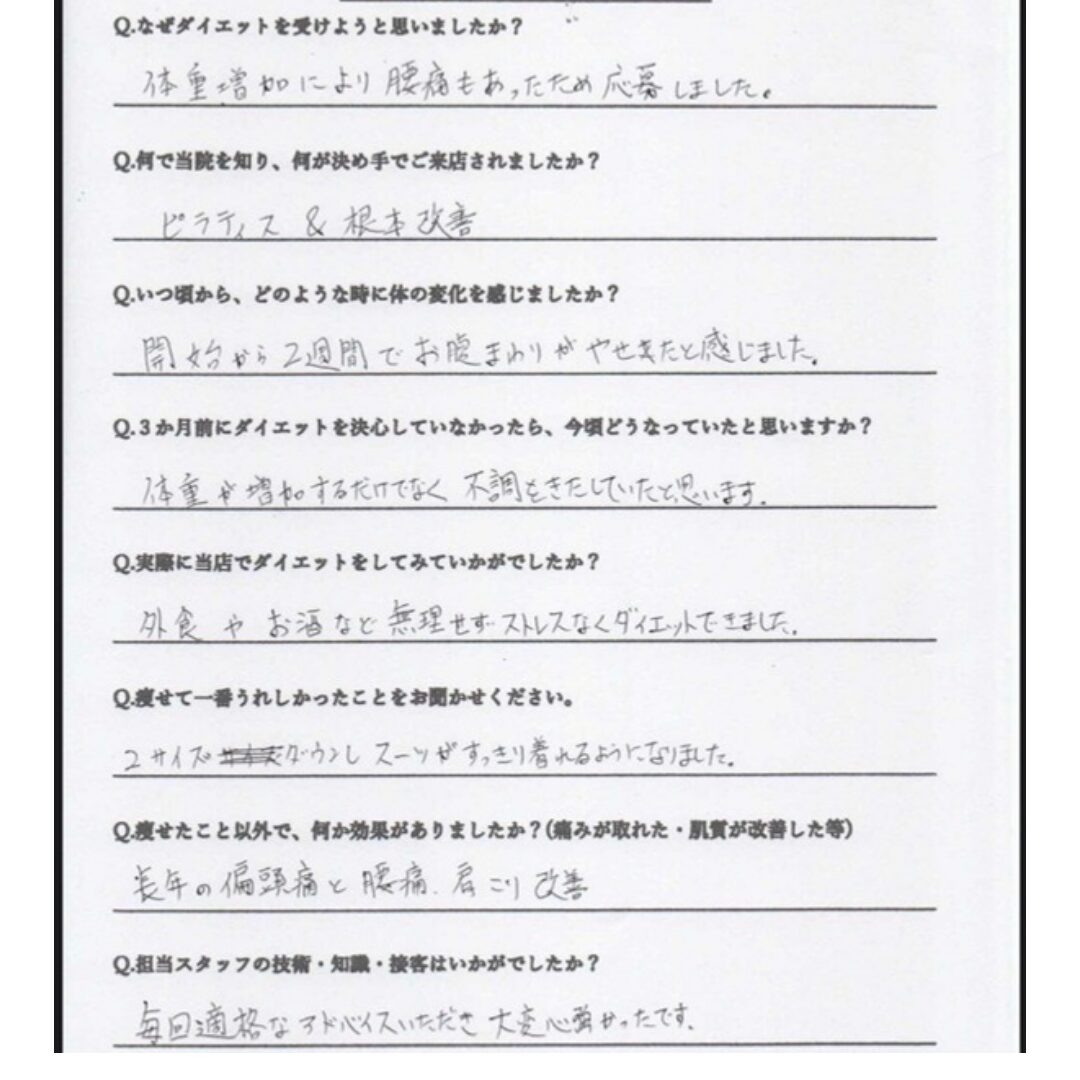 Q.なぜダイエットを受けようと思いましたか？
体重増加により腰痛もあったため応募しました。
Q.何で当院を知り、何が決め手でご来店されましたか？
ピラティス & 根本改善
Q.いつ頃から、どのような時に体の変化を感じましたか？
開始から2週間でお腹まわりがやせきたと感じました。
Q.３か月前にダイエットを決心していなかったら、今頃どうなっていたと思いますか？
体重が増加するだけでなく 不調をきたしていたと思います.
Q.実際に当店でダイエットをしてみていかがでしたか？
外食や お酒など無理せずストレスなくダイエットできました.
Q.痩せて一番うれしかったことをお聞かせください。
2サイズダウンし スーツがすっきり着れるようになりました。
Q.痩せたこと以外で、何か効果がありましたか？(痛みが取れた・肌質が改善した等)
長年の偏頭痛と腰痛.肩こり改善
Q.担当スタッフの技術・知識・接客はいかがでしたか？
毎回適格なアドバイスいただき大変心強かったです.